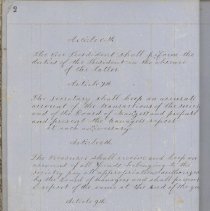 Article 6th
The Vice President shall perform the
duties of the President in the absence
of the latter.
Article 7th
The secretary shall keep an accurate
account of the transactions of the society
and of the Board of Managers and prepare
and present the managers report
at each anniversary
Article 8th
The treasurer shall receive and keep an
account of all funds belonging to the
society, pay all appropriations authorized
by the board of managers and present
a report of the same at the end of the year
Article 9th